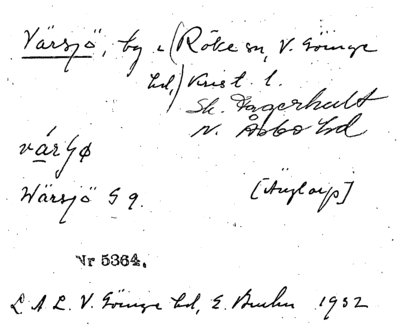 Värsjö, by i (Röke sn, V. Göinge
hd,) Krist. l.
Sk. Fagerhult
N. Åsbo hd
várʃø
Wärsjö G g. [Änglarp]
Nr 5364.
L A L. V. Göinge hd, E. Bruhn 1932